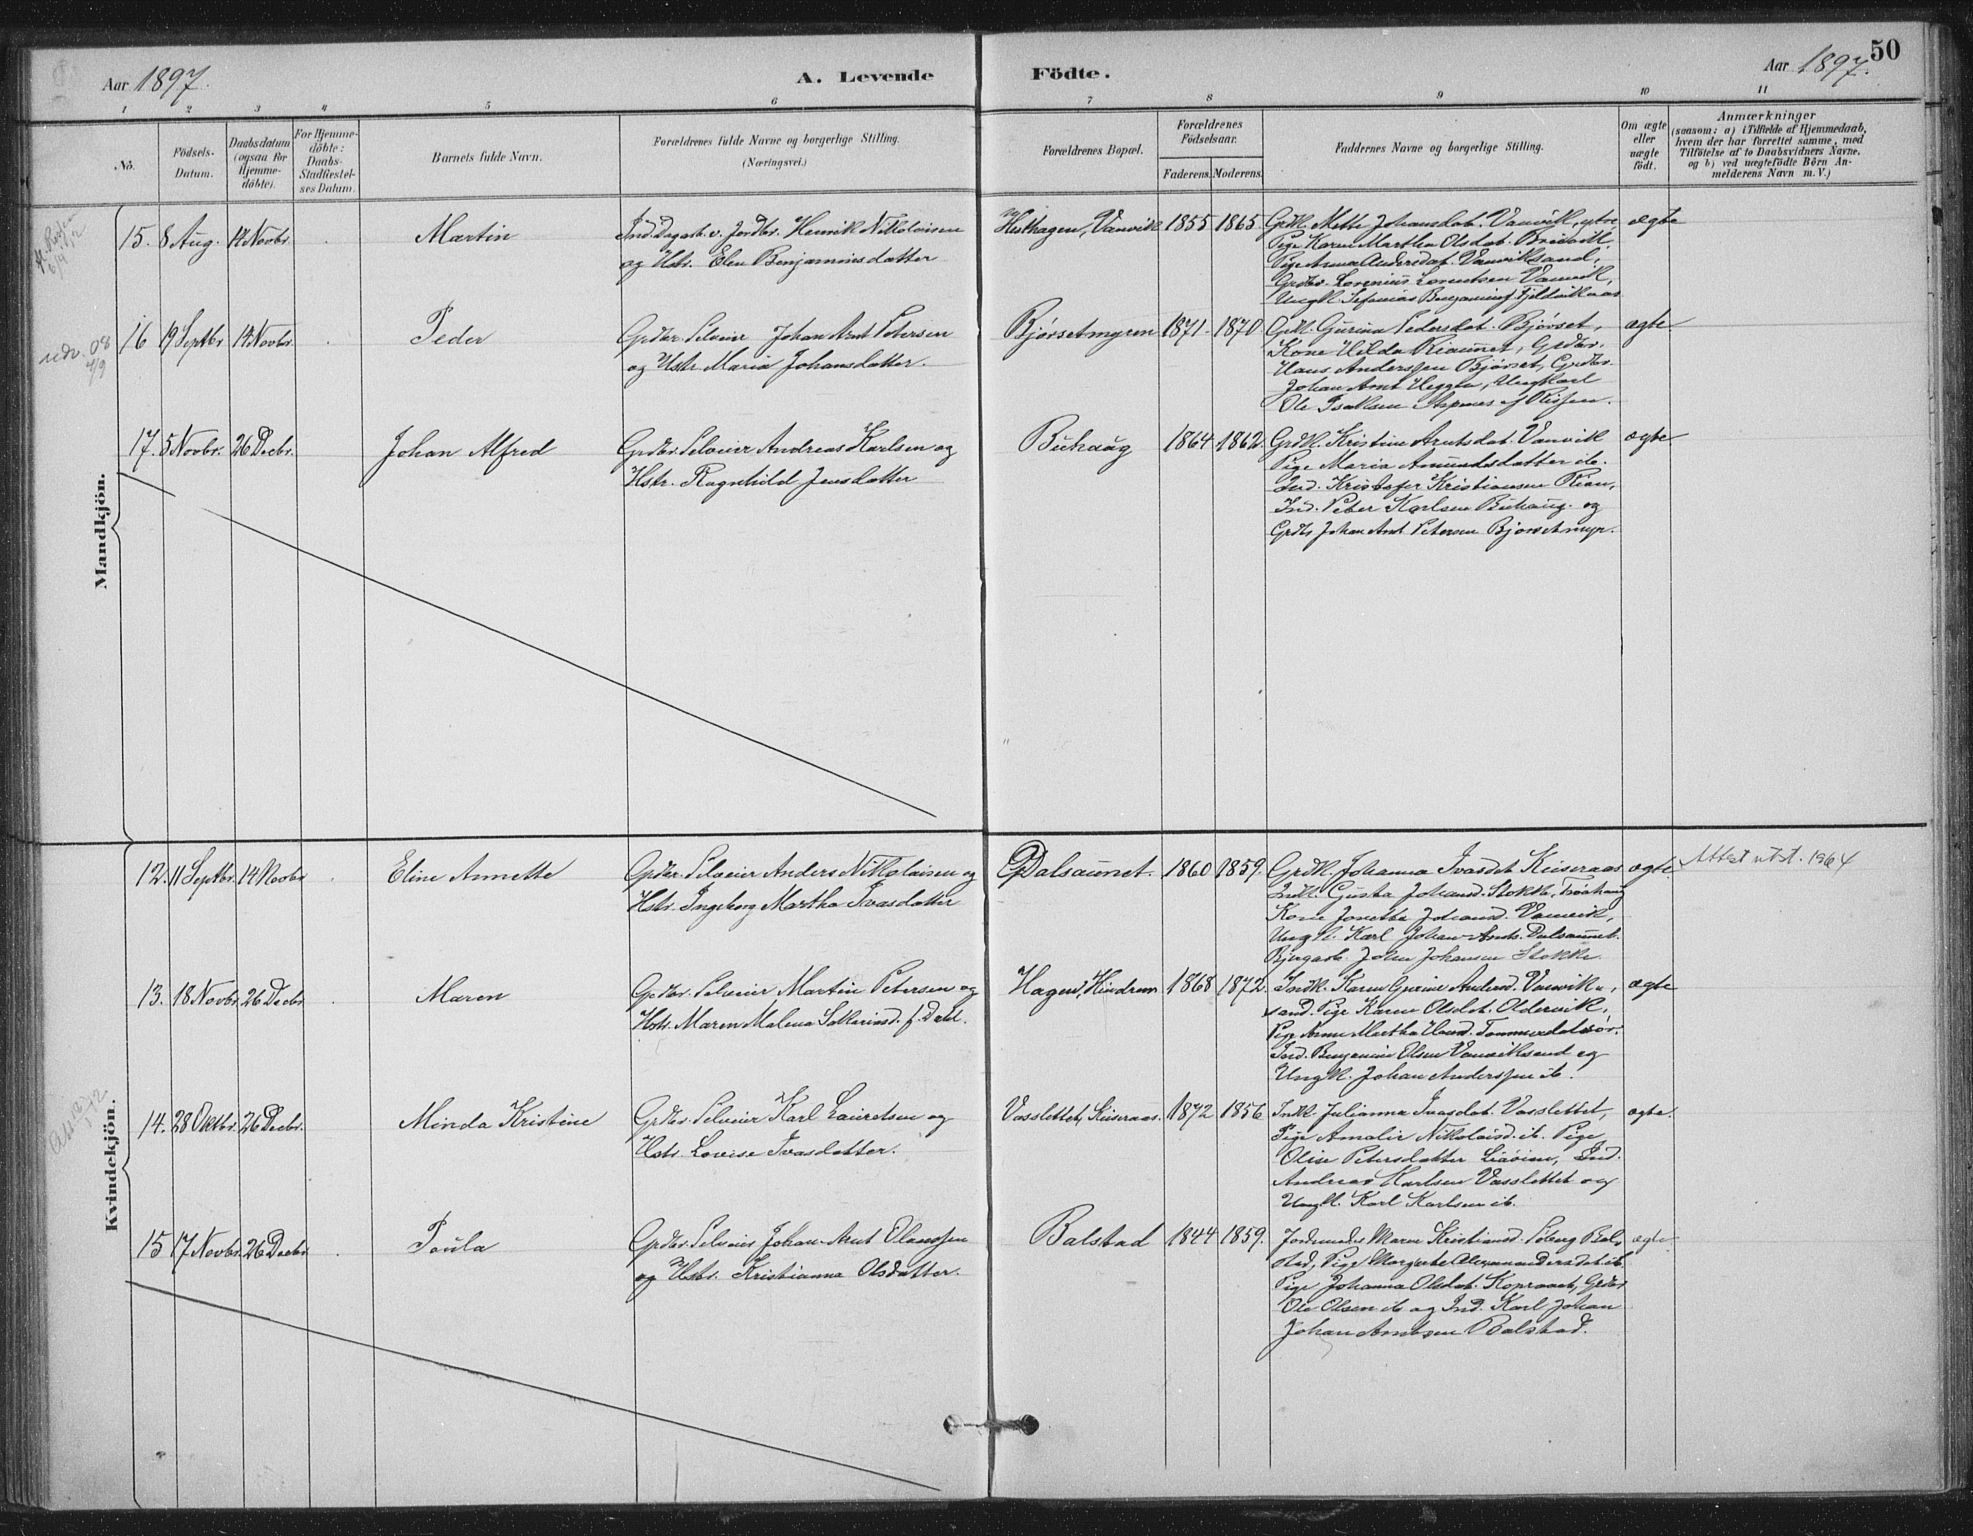 50
Aar 1897.
A. Levende
Födte.
Aar 1897.
1 2 3 4 5 6 7 8 9 10 11
No.
Födsels-
Datum.
Daabsdatum
(ogsaa for
Hjemme-
döbte).
For Hjemme-
döbte:
Daabs-
Stadfæstel-
ses Datum.
Barnets fulde Navn.
Forældrenes fulde Navne og borgerlige Stilling.
(Næringsvei.)
Forældrenes Bopæl.
Forældrenes
Födselsaar.
Faderens. Moderens.
Faddernes Navne og borgerlige Stilling.
Om ægte
eller
uægte
födt.
Anmærkninger
(saasom: a) i Tilfælde af Hjemmedaab,
hvem der har forrettet samme, med
Tilföielse af to Daabsvidners Navne.
og b) ved uægtefödte Börn An-
melderens Navn m. V.)
Mandkjön.
15. 8 Aug. 14 Novbr.
Martin
Ind. Dagarb. v. Jordbr. Henrik Nikolaisen
og Hstr. Elen Benjaminsdatter
Hesthagen, Vanvik 1855 1865
Grdk. Mette Johansdat. Vanvik, ytre,
Pige Karen Martha Olsdat. Bredvik,
Pige Anna Andersdat. Vanviksand,
Grdbr. Lorenius Lorentsen Vanvik,
Ungk. Sefanias Benjaminsf.
ægte
udv. 08
4/9
16 19 Septbr 14 Novbr
Peder
Grdbr. Selveier Johan Arnt Petersen
og Hstr. Maria Johansdatter.
Bjørsetmyren 1871 1870
Grdk. Gurina Pedersdat. Bjørset,
Kone Hilda Riaunet, Grdbr.
Hans Anderssen Bjørset, Grdbr.
Johan Arnt Heggli, Ungkarl
Ole Isaksen af Rissen.
ægte
17. 5 Novbr. 26 Decbr.
Johan Alfred
Grdbr. Selveier Andreas Karlsen og
Hstr. Ragnhild Jensdatter
Buhaug 1864 1862
Grdk. Kristine Arntsdat. Vanvik
Pige Maria Amundsdatter ib.
Ind. Kristofer Kristiansen Rian,
Ind. Peter Karlsen Buhaug. og
Grdbr Johan Arnt Petersen Bjørsetmyr.
ægte
Kvindekjön.
12. 11 Septbr. 14 Novbr
Eline Annette
Grdbr. Selveier Anders Nikolaisen og
Hstr. Ingeborg Martha Ivarsdatter
Dalsaunet. 1860 1859.
Grdk. Johanna Ivarsdat. Keiseraas
Indk. Gusta Johansd. Stokke,
Kone Jonetta Johansd. Vanvik,
Ungk. Karl Johan Arnts. Dalsaunet.
John Johansen Stokke.
ægte.
Attest utst. 1964
13. 18 Novbr. 26 Decbr
Maren
Grdbr. Selveier Martin Petersen og
Hstr. Maren Malena Sakariasd. f. Dahl.
Hagen, Hindrem 1868 1872.
Indk. Karen Gurine Andersd. Vanvik-
sand. Pige Karen Olsdat. Oldervik,
Pige Anne Martha
Ind. Benjamin Olsen Vanviksand og
Ungk. Johan Anderssen ib.
ægte
14. 28 Oktbr. 26 Decbr.
Minda Kristine
Grdbr. Selveier Karl Lauretsen og
Hstr. Lovise Ivarsdatter.
Vasslettet, Keiseraas. 1872 1856
Indk. Julianna Ivarsdat. Vasslettet,
Pige Amalie Nikolaisd. ib. Pige
Oline Petersdatter Liaøien, Ind.
Andreas Karlsen Vasslettet og
Ungk. Karl Karlsen ib.
ægte.
15 17 Novbr. 26 Decbr
Paula
Grdbr. Selveier Johan Arnt Olaussen
og Hstr. Kristianna Olsdatter.
Balstad 1844 1859.
Jordemoder Maren Kristiansd. Søberg Bal-
stad, Pige Margrete Alexandersdat ib.
Pige Johanna Olsdat. Kopraaet, Grdbr
Ole Olsen ib og Ind. Karl Johan
Johan Arntsen Balstad.
ægte